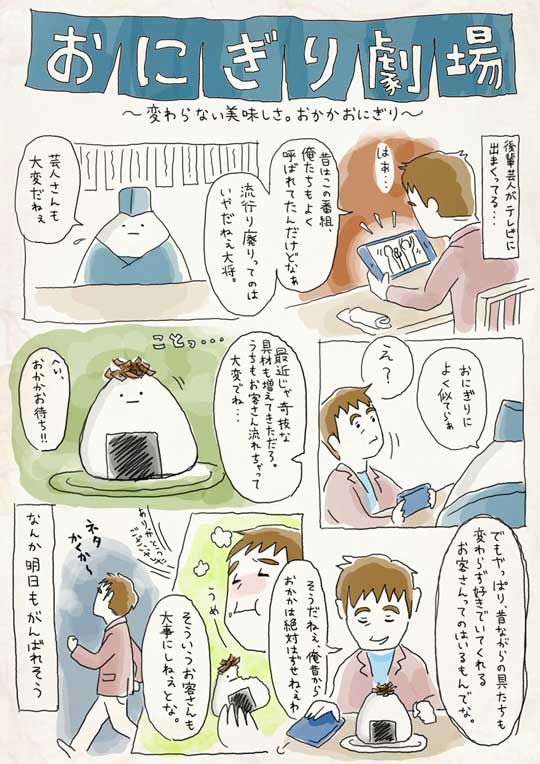 おにぎり劇場
～変わらない美味しさ。おかかおにぎり～
後輩芸人がテレビに
出まくってる…
はぁ…
昔はこの番組、
俺たちもよく
呼ばれてたんだけどなぁ
流行り廃りってのは
いやだねぇ大将。
芸人さんも
大変だねぇ
おにぎりに
よく似てらぁ
え？
最近じゃ奇抜な
具材も増えてきただろ。
うちもお客さん流れちゃって
大変でね…
ことっ…
へい、
おかかお待ち!!
でもやっぱり、昔ながらの具たちも
変わらず好きでいてくれる
お客さんってのはいるもんでな。
そうだねぇ、俺昔から
おかかは絶対はずせねぇわ
うめ
そういうお客さんも
大事にしねぇとな。
ありがとう
ネタ
かくか〜
なんか明日もがんばれそう